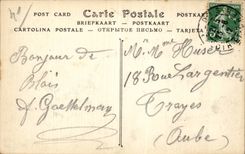 4f
POST CARD
Carte Postale
BRIEFKAART - POSTKARTE
CARTOLINA POSTALE - ОТКРЫТОЕ ПИСЬМО - TARJETA
Bonjour de
Blois
M. Mme Husson
18 Rue Largentier
Troyes
(Aube)